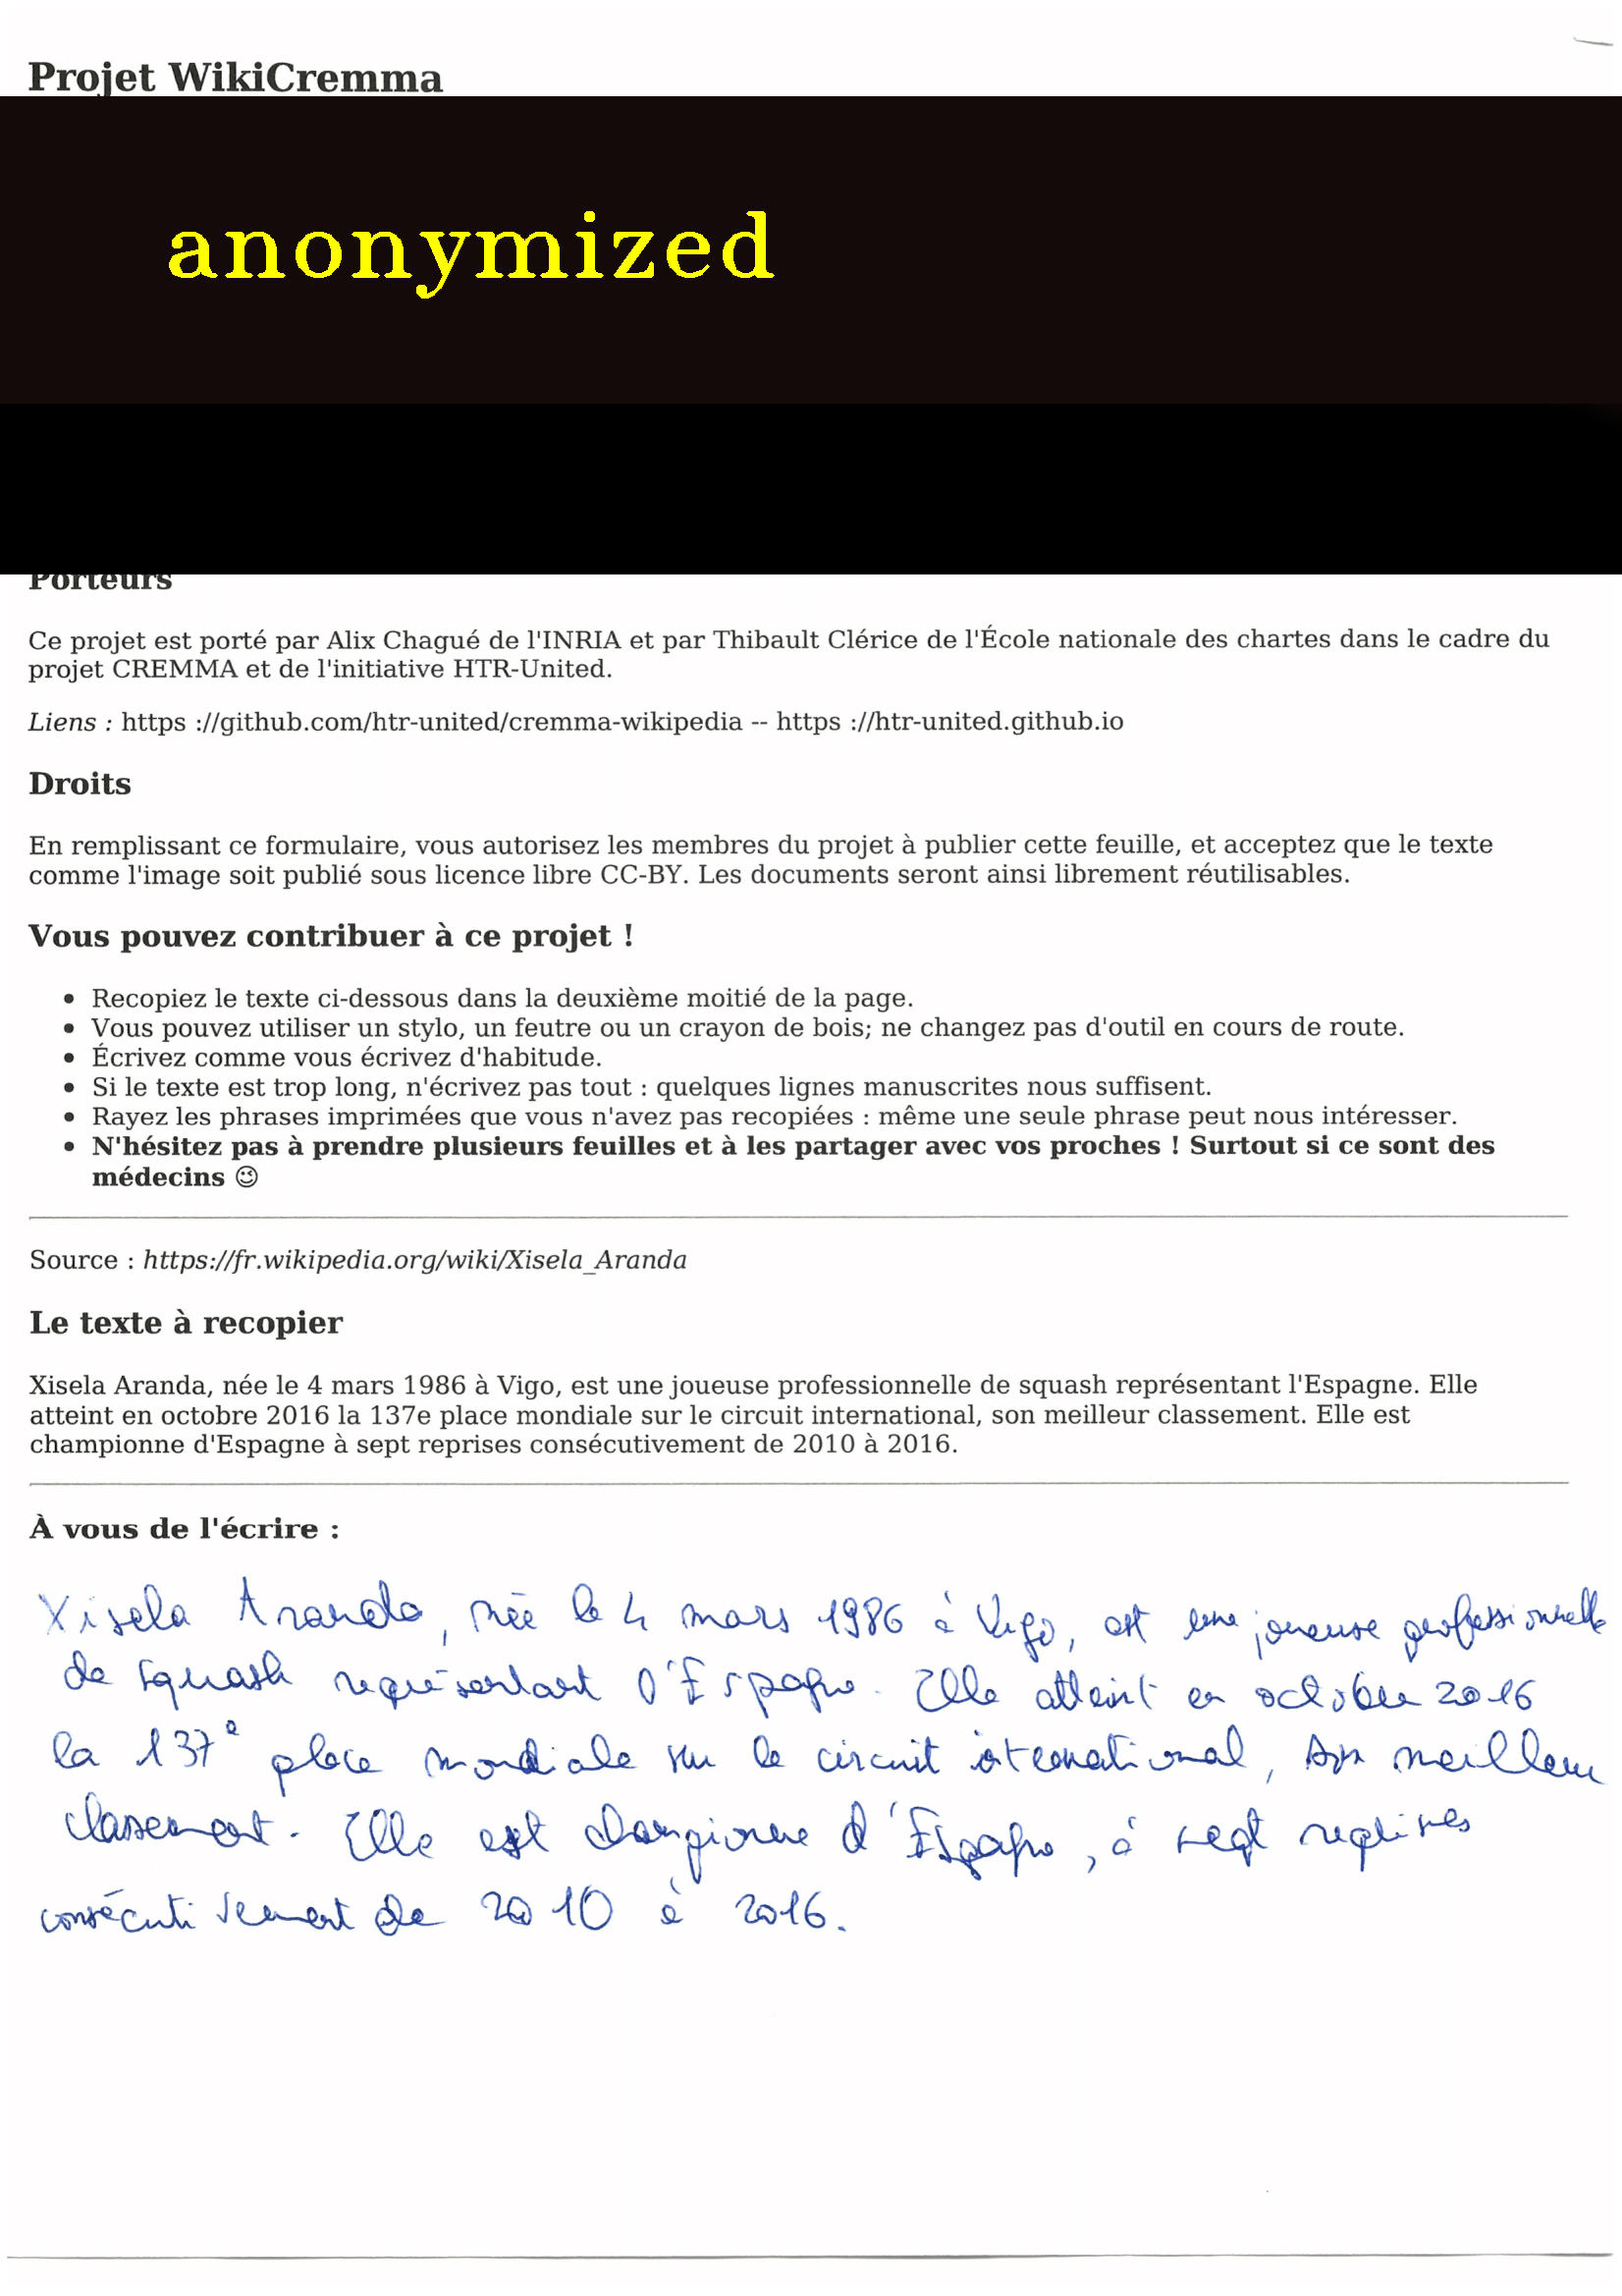 Projet WikiCremma
anonymized
Porteurs
Ce projet est porté par Alix Chagué de l'INRIA et par Thibault Clérice de l'École nationale des chartes dans le cadre du
projet CREMMA et de l'initiative HTR-United.
Liens : https ://github.com/htr-united/cremma-wikipedia -- https ://htr-united.github.io
Droits
En remplissant ce formulaire, vous autorisez les membres du projet à publier cette feuille, et acceptez que le texte
comme l'image soit publié sous licence libre CC-BY. Les documents seront ainsi librement réutilisables.
Vous pouvez contribuer à ce projet !
• Recopiez le texte ci-dessous dans la deuxième moitié de la page.
• Vous pouvez utiliser un stylo, un feutre ou un crayon de bois; ne changez pas d'outil en cours de route.
• Écrivez comme vous écrivez d'habitude.
• Si le texte est trop long, n'écrivez pas tout : quelques lignes manuscrites nous suffisent.
• Rayez les phrases imprimées que vous n'avez pas recopiées : même une seule phrase peut nous intéresser.
• N'hésitez pas à prendre plusieurs feuilles et à les partager avec vos proches ! Surtout si ce sont des
médecins 😉
Source : https://fr.wikipedia.org/wiki/Xisela_Aranda
Le texte à recopier
Xisela Aranda, née le 4 mars 1986 à Vigo, est une joueuse professionnelle de squash représentant l'Espagne. Elle
atteint en octobre 2016 la 137e place mondiale sur le circuit international, son meilleur classement. Elle est
championne d'Espagne à sept reprises consécutivement de 2010 à 2016.
À vous de l'écrire :
Xisela Aranda, née le 4 mars 1986 à Vigo, est une joueuse professionnelle
de squash représentant l'Espagne. Elle atteint en octobre 2016
la 137e place mondiale sur le circuit international, son meilleur
classement. Elle est championne d'Espagne, à sept reprises
consécutivement de 2010 à 2016.